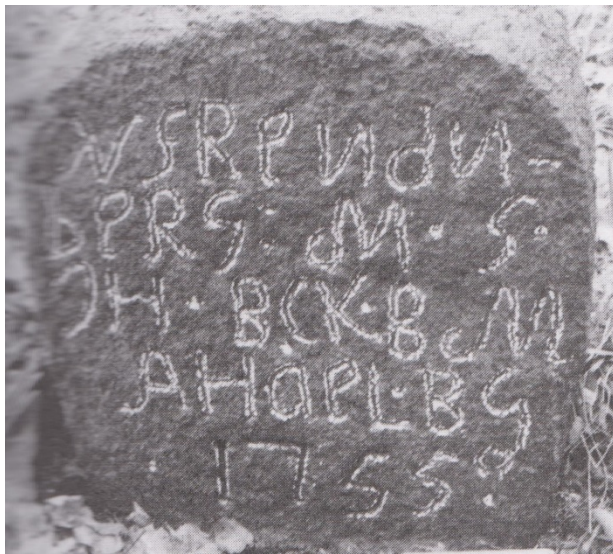 WSRPИdИ-
DPRS·M·S·
OH·BCK·B·M
AH·aPL·BS
·1755·